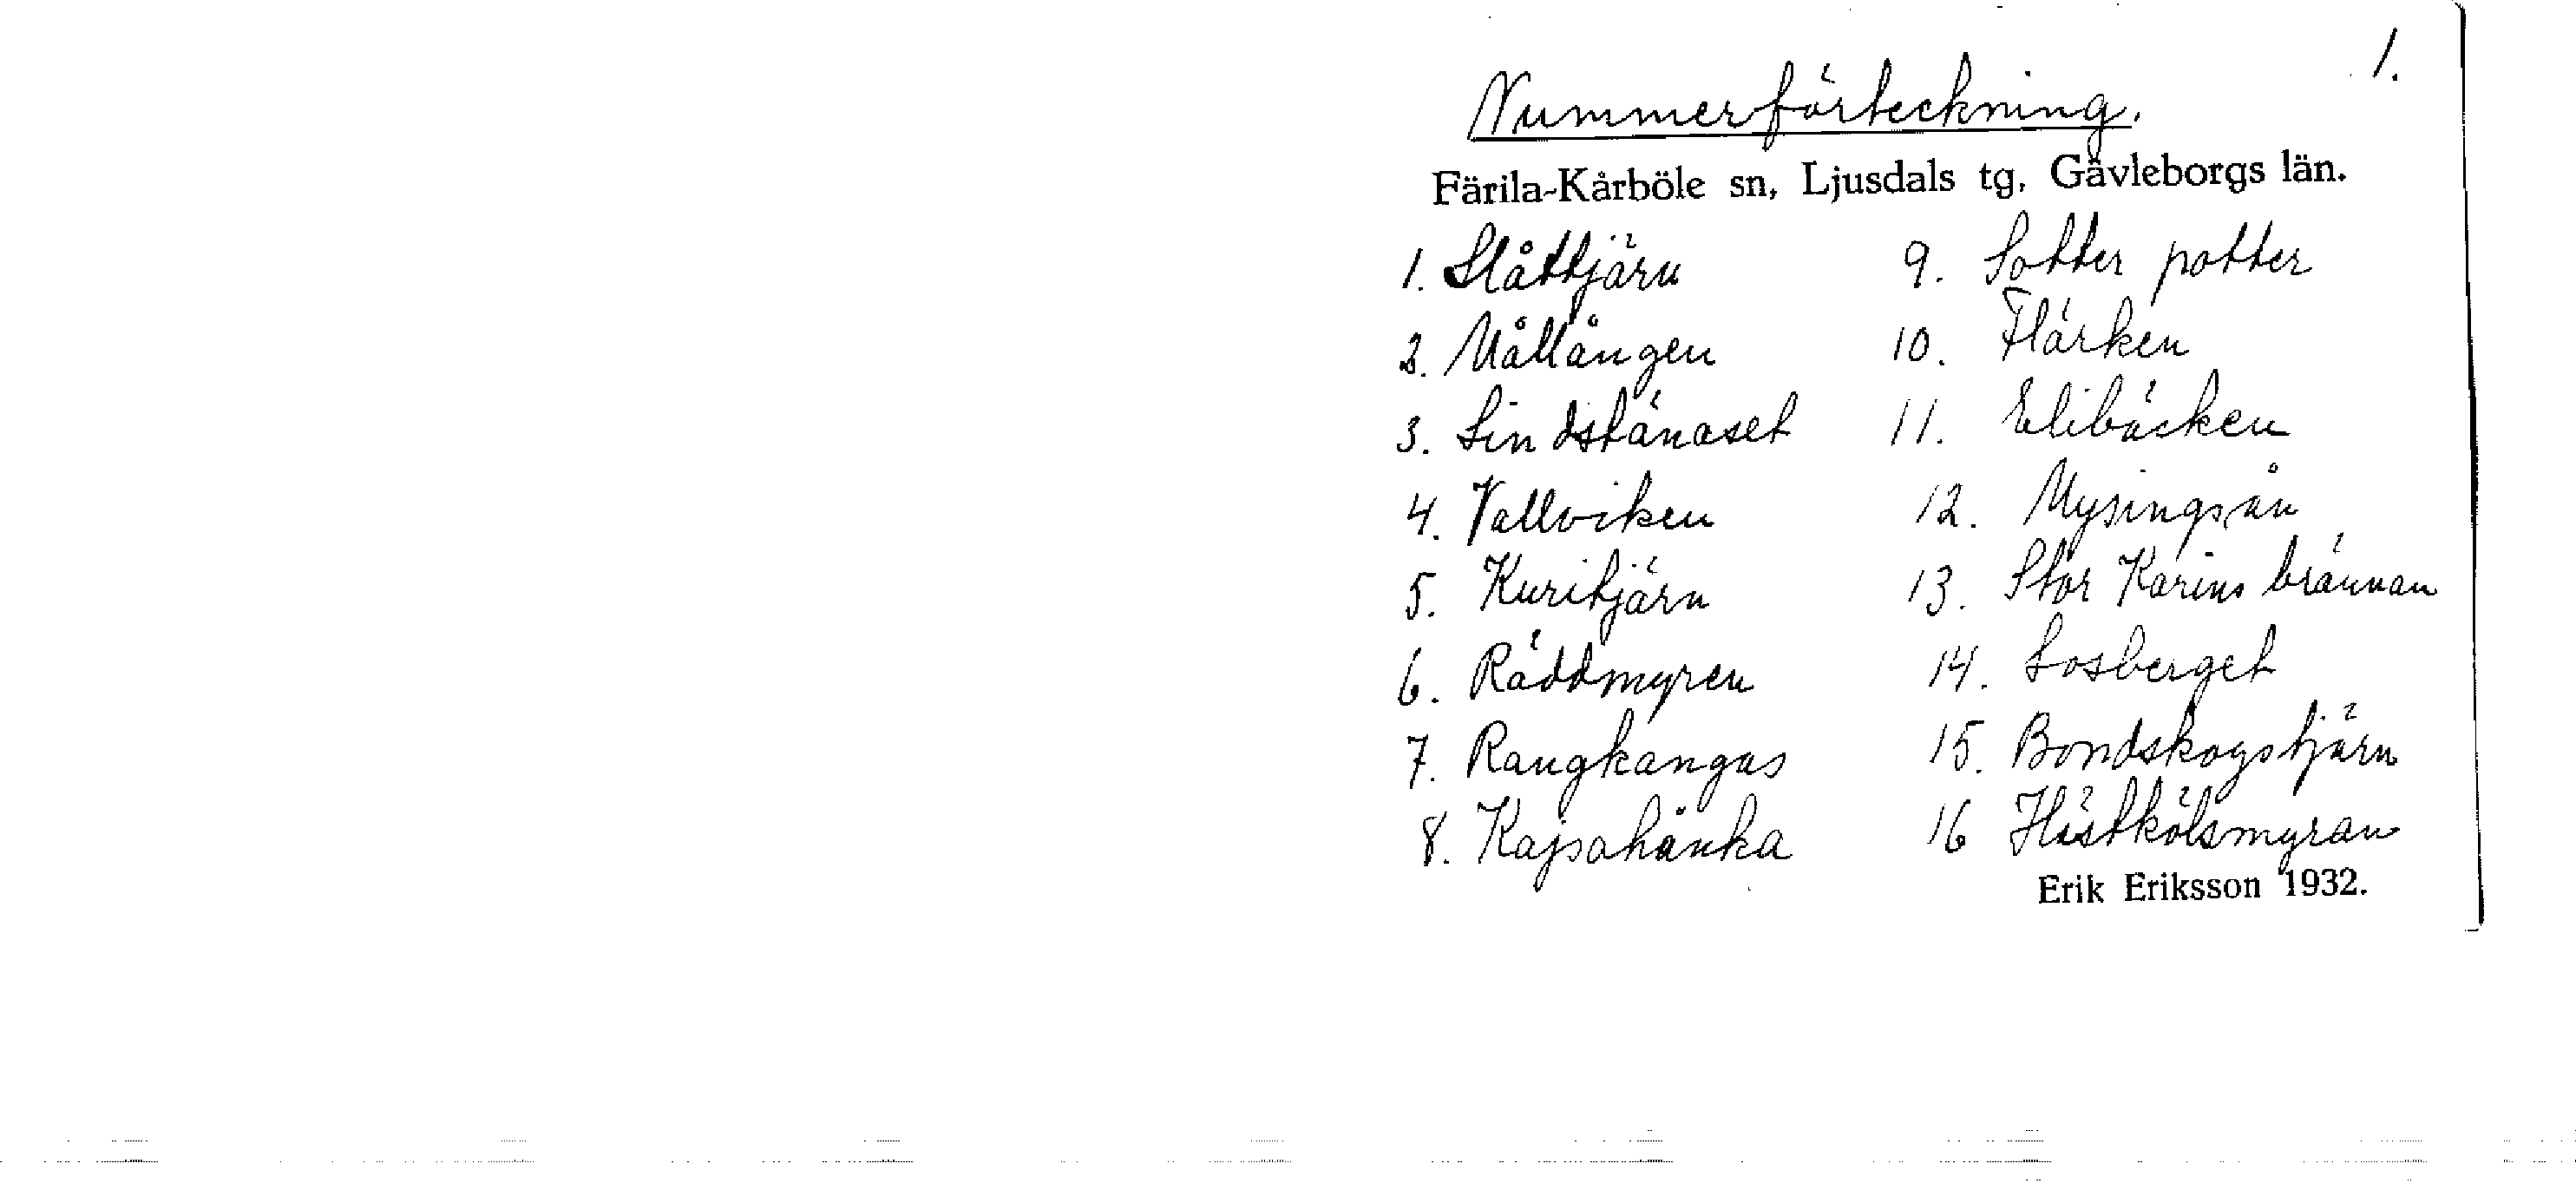 1.
Nummerförteckning.
Färila-Kårböle sn, Ljusdals tg, Gävleborgs län.
1. Slåttjärn
2. Mållången
3. Lindstånaset
4. Vallviken
5. Kuritjärn
6. Räddmyren
7. Rangkangas
8. Kajsahånka
9. Sotter potter
10. Flärken
11. Elibäcken
12. Mysingsån
13. Stor Karins brännan
14. Losberget
15. Bondskogstjärn
16 Hästkölsmyran
Erik Eriksson 1932.